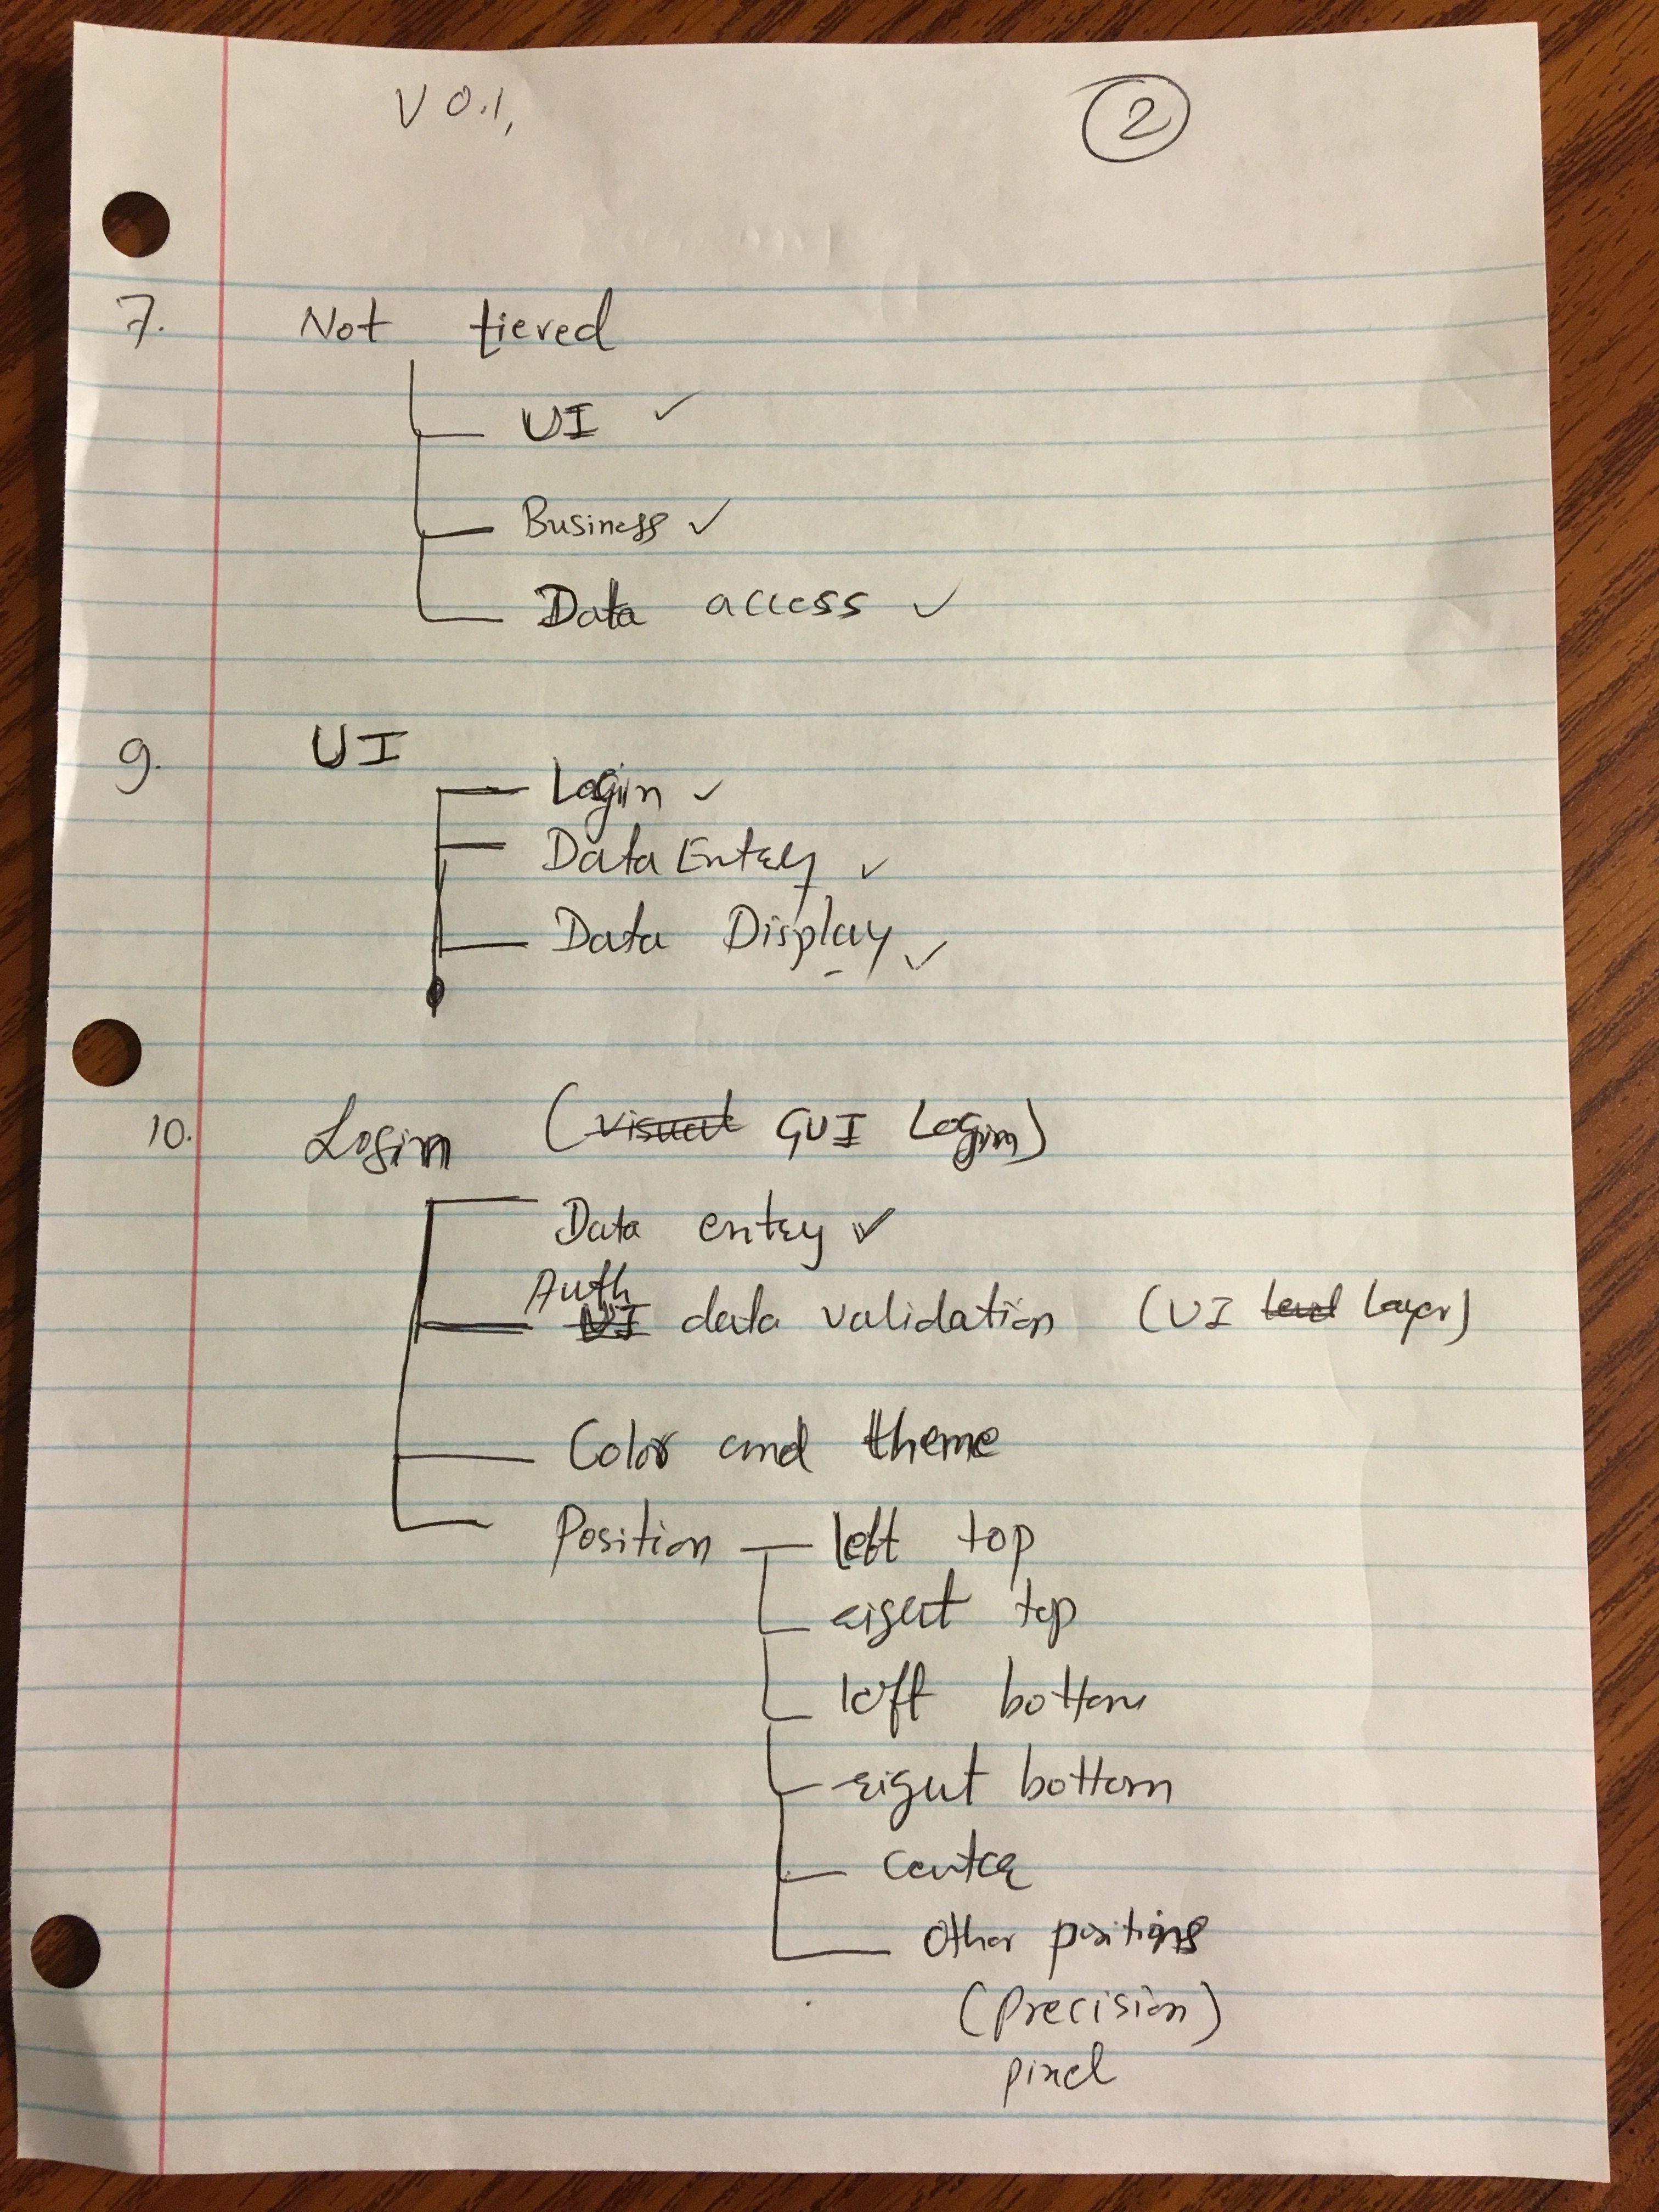 V 0.1, 2
7. Not tiered
UI ✓
Business ✓
Data access ✓
9. UI
Login ✓
Data Entry ✓
Data Display ✓
10. Login (visual GUI Login)
Data entry ✓
Auth
UI data validation (UI level Layer)
Color and theme
Position left top
right top
left bottom
right bottom
center
Other positions
(precision)
pixel